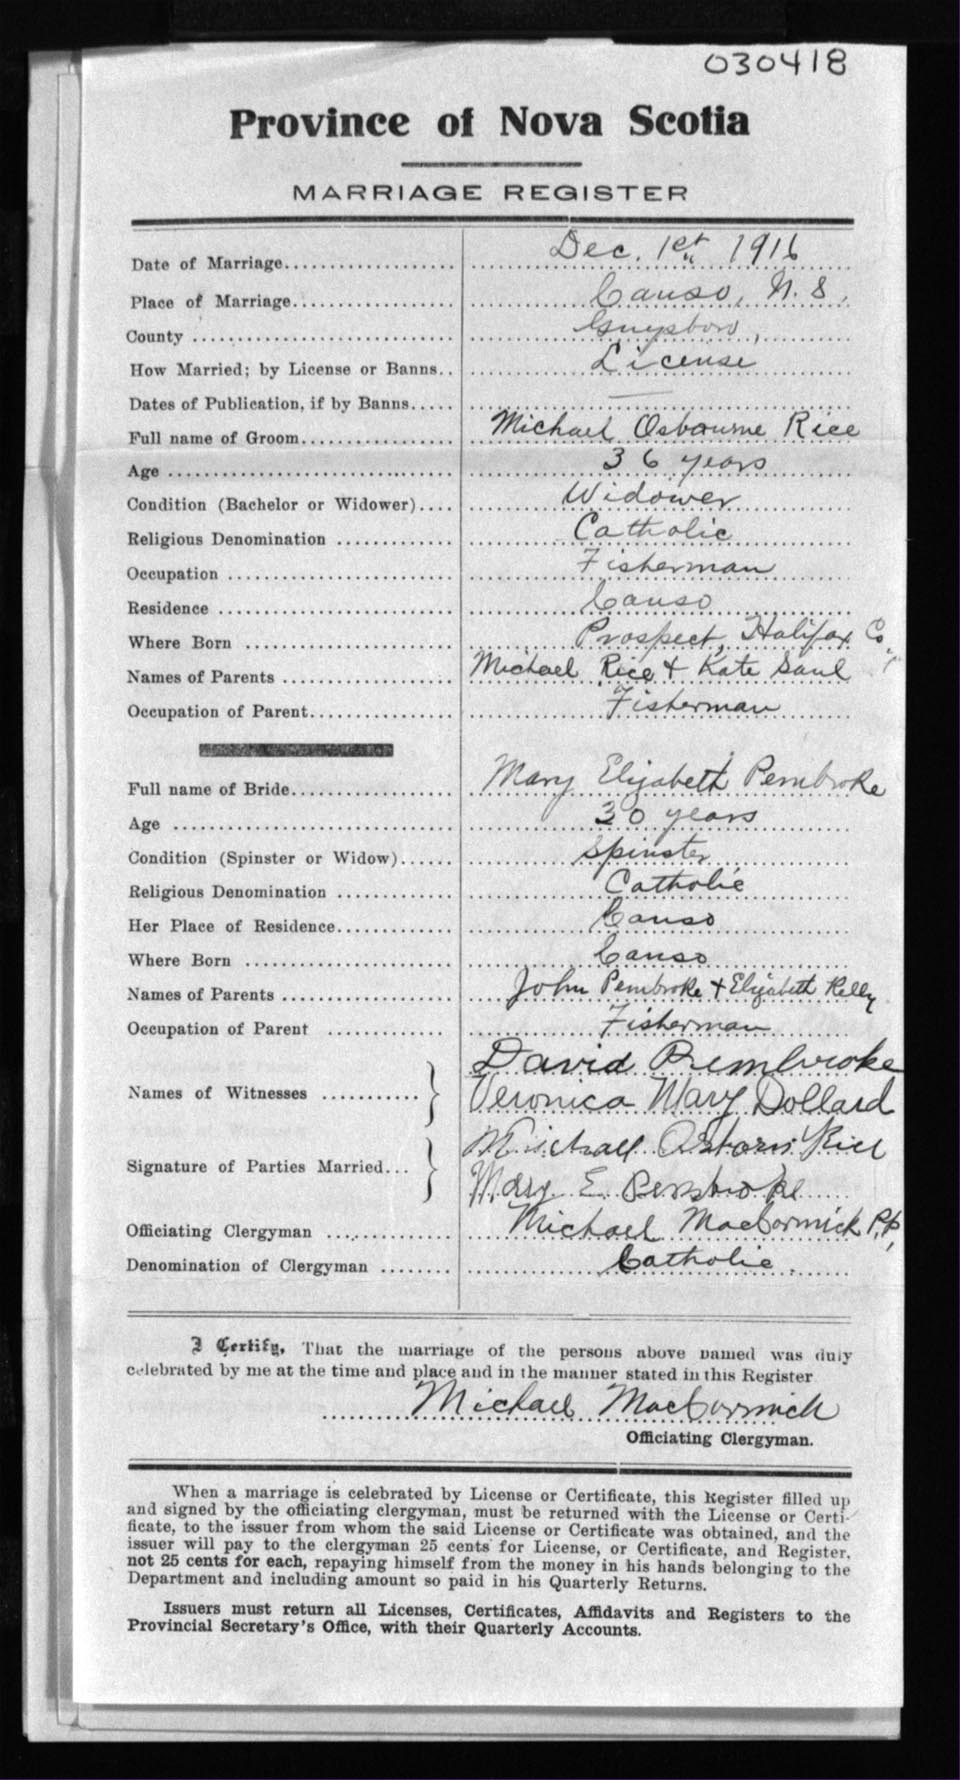 030418
Province of Nova Scotia
MARRIAGE REGISTER
Date of Marriage Dec. 1st 1916
Place of Marriage Canso, N. S.
County Guysboro,
How Married; by License or Banns License
Dates of Publication, if by Banns —
Full name of Groom Michael Osbourne Rice
Age 36 years
Condition (Bachelor or Widower) Widower
Religious Denomination Catholic
Occupation Fisherman
Residence Canso
Where Born Prospect, Halifax Co.,
Names of Parents Michael Rice & Kate Saul
Occupation of Parent Fisherman
Full name of Bride Mary Elizabeth Pembroke
Age 30 years
Condition (Spinster or Widow) Spinster
Religious Denomination Catholic
Her Place of Residence Canso
Where Born Canso
Names of Parents John Pembroke & Elizabeth Kelly
Occupation of Parent Fisherman
David Pembroke
Names of Witnesses Veronica Mary Dollard
Michall Osborn Rice
Signature of Parties Married Mary E Pembroke
Officiating Clergyman Michael MacCormick P.P.,
Denomination of Clergyman Catholic.
I Certify, That the marriage of the persons above named was duly
celebrated by me at the time and place and in the manner stated in this Register
Michael MacCormick
Officiating Clergyman.
When a marriage is celebrated by License or Certificate, this Register filled up
and signed by the officiating clergyman, must be returned with the License or Certi-
ficate, to the issuer from whom the said License or Certificate was obtained, and the
issuer will pay to the clergyman 25 cents for License, or Certificate, and Register,
not 25 cents for each, repaying himself from the money in his hands belonging to the
Department and including amount so paid in his Quarterly Returns.
Issuers must return all Licenses, Certificates, Affidavits and Registers to the
Provincial Secretary's Office, with their Quarterly Accounts.